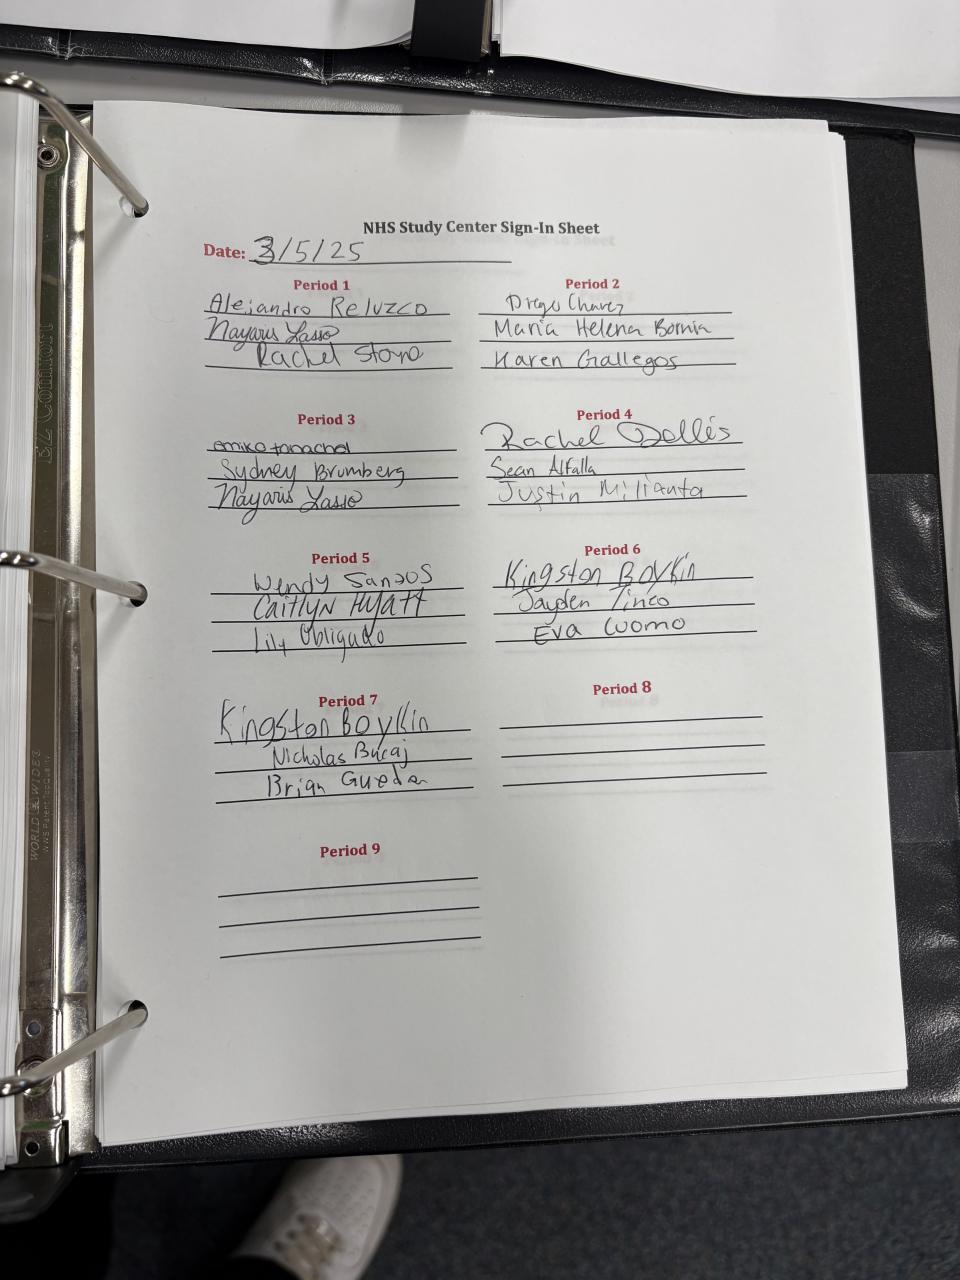 NHS Study Center Sign-In Sheet
Date: 3/5/25
Period 1
Alejandro Reluzco
Nayaris Lasso
Rachel Stone
Period 2
Diego Chavez
Maria Helena Bornia
Karen Gallegos
Period 3
emiko tamachol
Sydney Brumberg
Nayaris Lasso
Period 4
Rachel Dellis
Sean Alfalla
Justin Milianta
Period 5
Wendy Santos
Caitlyn Hyatt
Lily Obligado
Period 6
Kingston Boykin
Jayden Tineo
Eva Cuomo
Period 7
Kingston Boykin
Nicholas Bucaj
Brian Guedea
Period 8
Period 9
WORLD WIDE